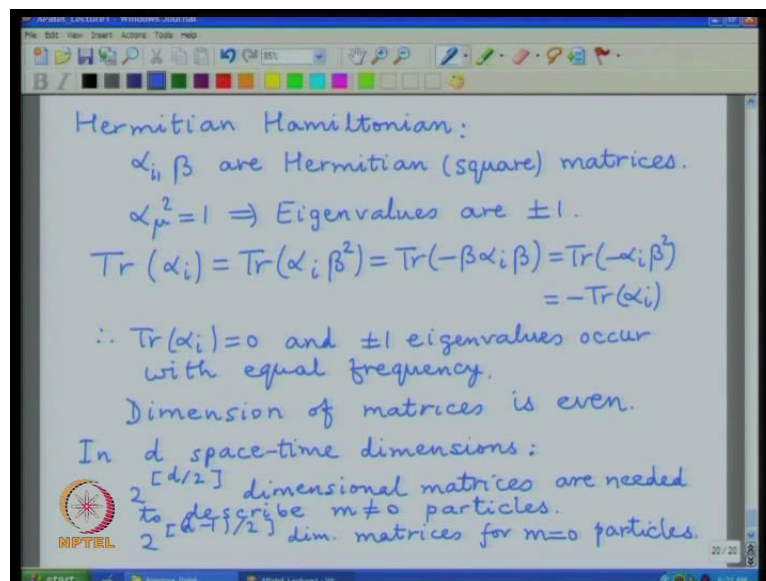 APatel_Lecture1 - Windows Journal
File Edit View Insert Actions Tools Help
85%
B I
Hermitian Hamiltonian:
αᵢ, β are Hermitian (square) matrices.
α_μ² = 1 ⇒ Eigenvalues are ±1.
Tr (αᵢ) = Tr(αᵢ β²) = Tr(-β αᵢ β) = Tr(-αᵢ β²)
= -Tr(αᵢ)
∴ Tr(αᵢ) = 0 and ±1 eigenvalues occur
with equal frequency.
Dimension of matrices is even.
In d space-time dimensions:
2^[d/2] dimensional matrices are needed
to describe m≠0 particles.
2^[(d-1)/2] dim. matrices for m=0 particles.
NPTEL
20 / 20
start